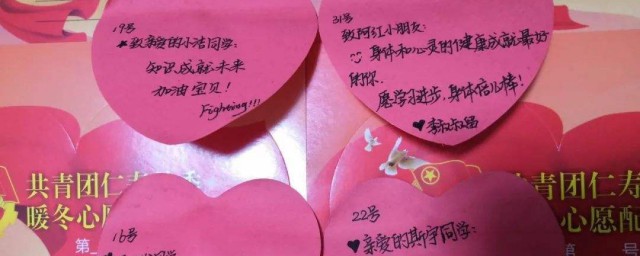 19号
致亲爱的小洁同学:
知识成就未来
加油宝贝!
Fighting!!!
31号
致阿红小朋友:
身体和心灵的健康成就最好
的你.
愿学习进步,身体倍儿棒!
共青团仁寿
暖冬心愿
第
共青团仁寿
冬心愿配
第
16号
同学
22号
亲爱的斯宇同学: